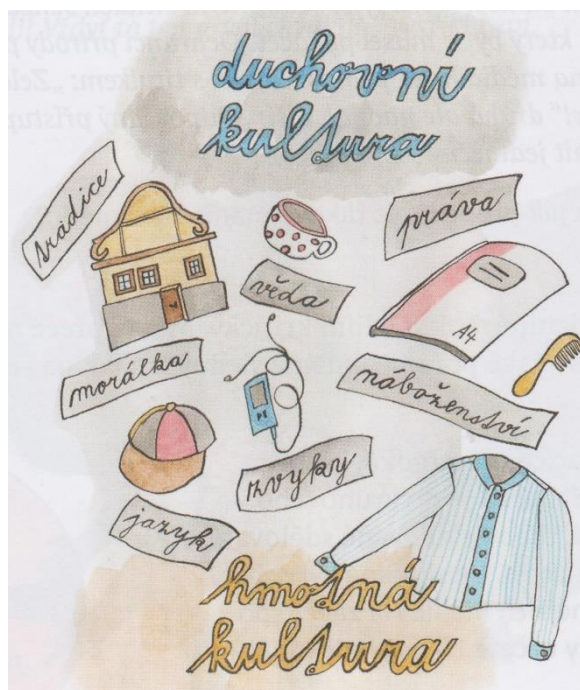 duchovní
kultura
tradice
práva
věda
A4
morálka
náboženství
zvyky
jazyk
hmotná
kultura